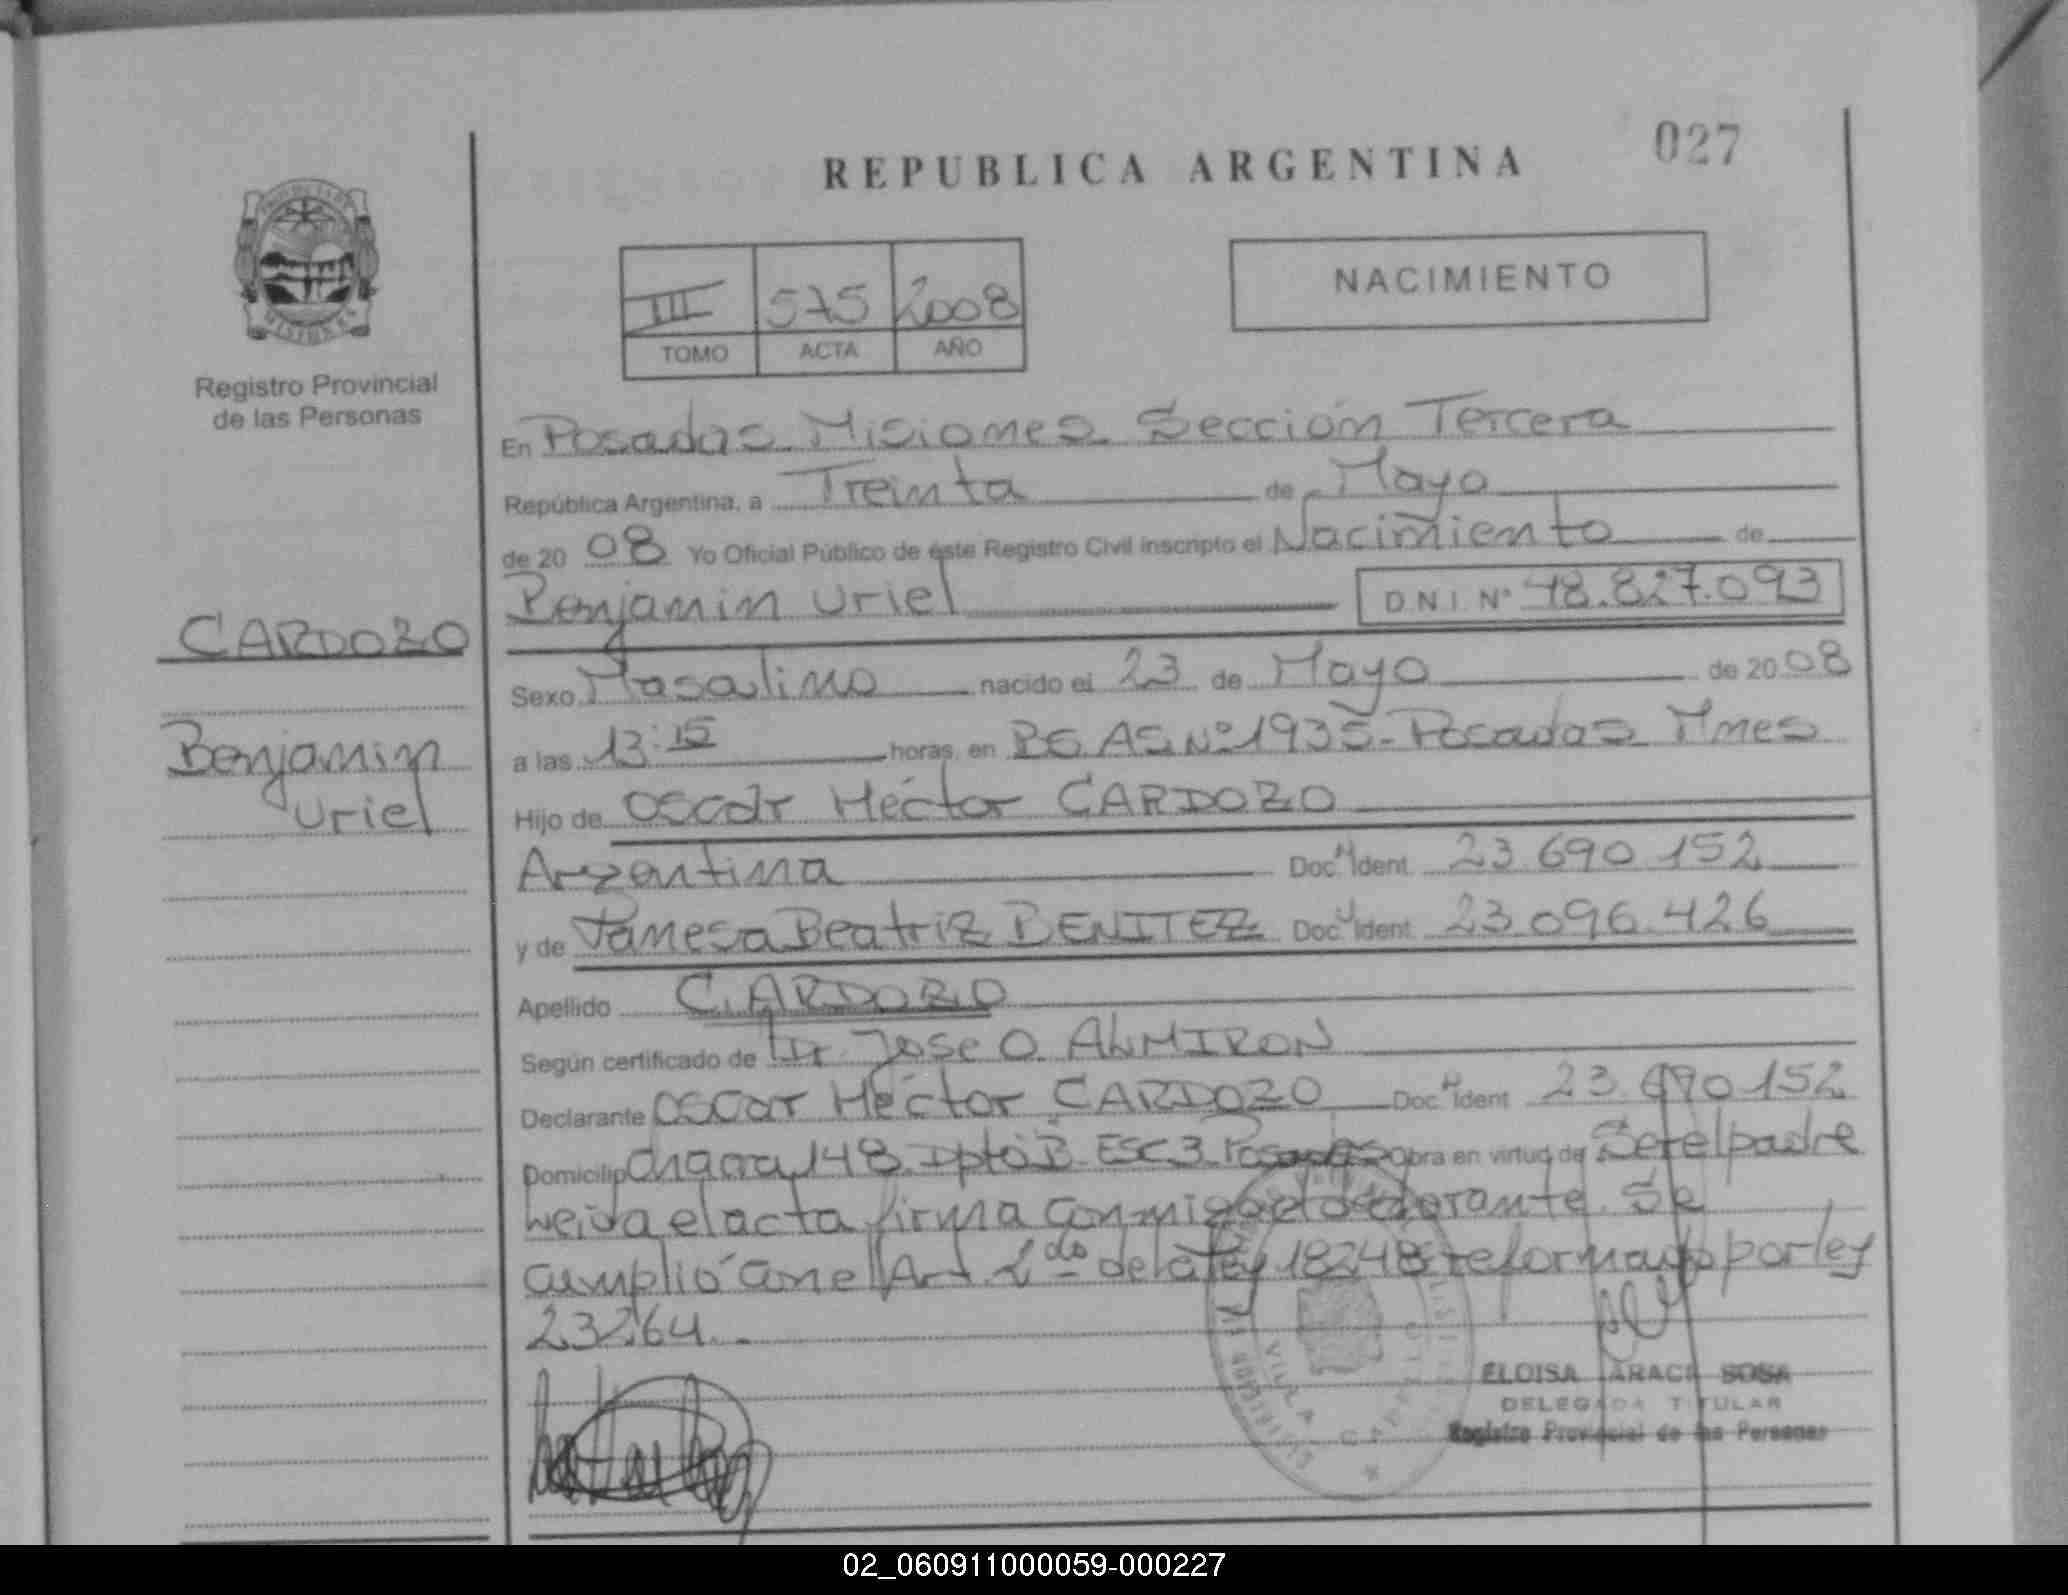 027
REPUBLICA ARGENTINA
NACIMIENTO
III 575 2008
TOMO ACTA AÑO
Registro Provincial
de las Personas
CARDOZO
Benjamin
Uriel
En Posadas Misiones Sección Tercera
República Argentina, a Treinta de Mayo
de 20 08 Yo Oficial Público de éste Registro Civil inscripto el Nacimiento de
Benjamin Uriel DNI Nº 48.827.093
Sexo Masculino nacido el 23 de Mayo de 20 08
a las 13:15 horas, en Posadas Mnes
Hijo de Oscar Héctor CARDOZO
Argentina Doc. Ident 23.690.152
y de Beatriz BENITEZ Doc. Ident 23.096.426
Apellido CARDOZO
Según certificado de Dr. Jose O. ALMIRON
Declarante Oscar Héctor CARDOZO Doc. Ident 23.690.152
Domicilio Chacra 148 Dpto B ESC 3 Posadas Obra en virtud de Ser el padre
Leida el acta firma conmigo el declarante. Se
cumplió con el Art 2do de la ley 18248 reformado por ley
23264.-
ELOISA ARACI SOSA
DELEGADA TITULAR
Registro Provincial de las Personas
02_060911000059-000227